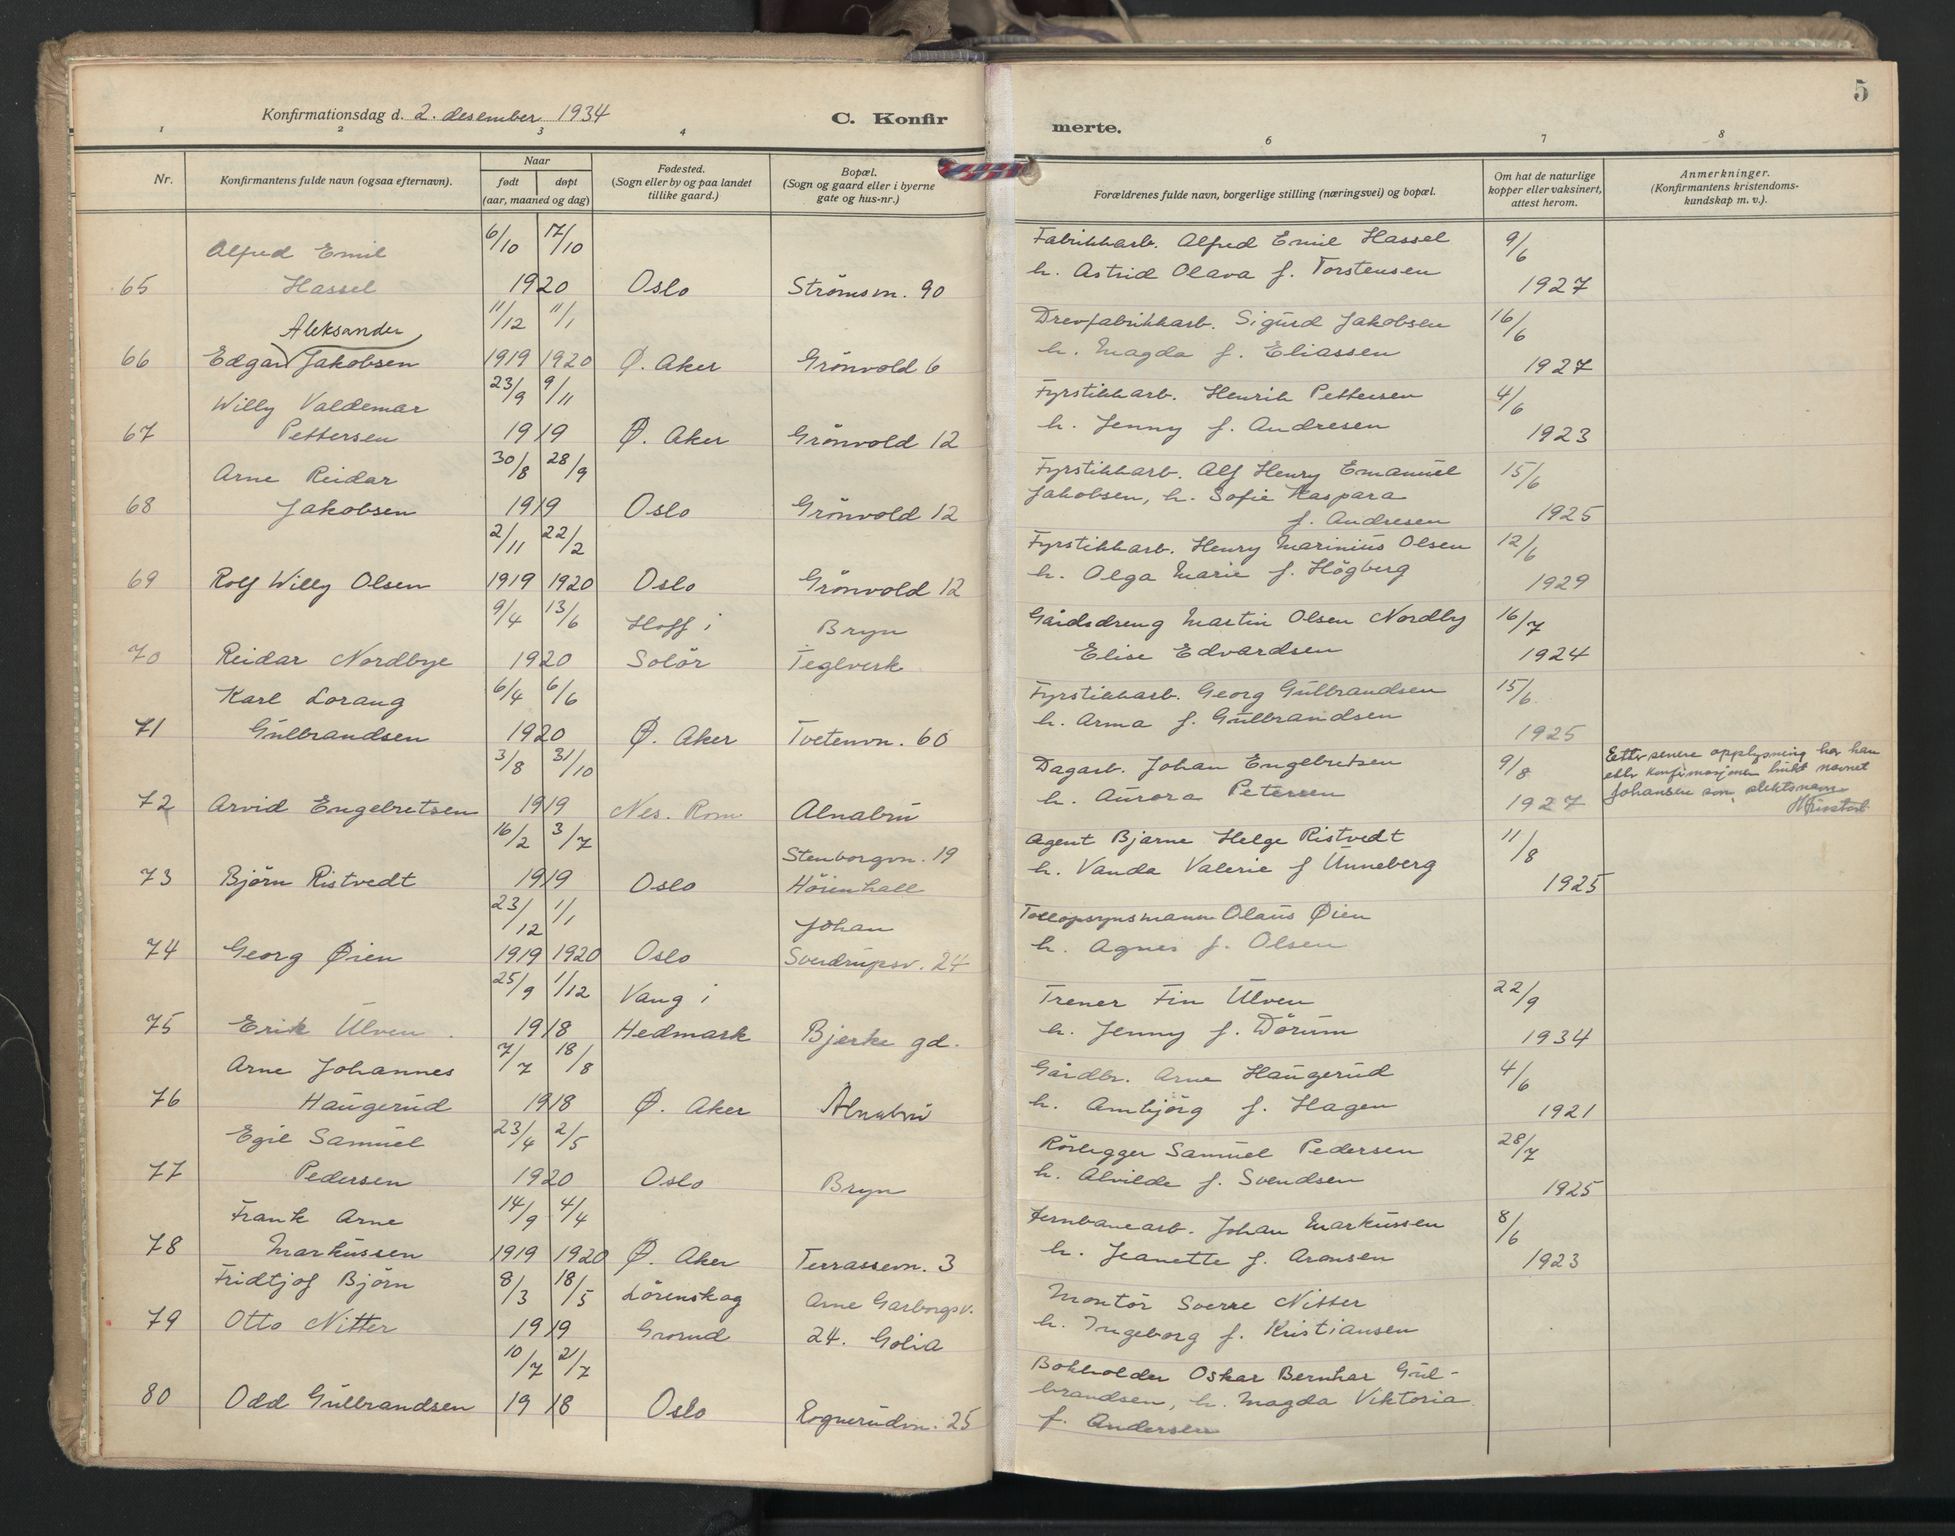 5
Konfirmationsdag d. 2. desember 1934
C. Konfir
merte.
1 2 3 4 6 7 8
Nr.
Konfirmantens fulde navn (ogsaa efternavn).
Naar
født døpt
(aar, maaned og dag)
Fødested.
(Sogn eller by og paa landet
tillike gaard.)
Bopæl.
(Sogn og gaard eller i byerne
gate og hus-nr.)
Forældrenes fulde navn, borgerlige stilling (næringsvei) og bopæl.
Om hat de naturlige
kopper eller vaksinert,
attest herom.
Anmerkninger.
(Konfirmantens kristendoms-
kundskap m. v.).
Alfred Emil 6/10 17/10 Fabrikkarb. Alfred Emil Hassel 9/6
65 Hassel 1920 Oslo Strømsvn. 90 h. Astrid Olava f. Torstensen 1927
Aleksander 11/12 11/1 Drevfabrikkarb. Sigurd Jakobsen 16/6
66 Edgar Jakobsen 1919 1920 Ø. Aker Grönvold 6 h. Magda f. Eliassen 1927
Willy Valdemar 23/9 9/11 Fyrstikkarb. Henrik Pettersen 4/6
67 Pettersen 1919 Ø. Aker Grönvold 12 h. Jenny f. Andresen 1923
Arne Reidar 30/8 28/9 Fyrstikkarb. Alf Henry Emanuel 15/6
68 Jakobsen 1919 Oslo Grönvold 12 Jakobsen, h. Sofie Kaspara
f. Andresen 1925
2/11 22/2 Fyrstikkarb. Henry Marinius Olsen 12/6
69 Rolf Willy Olsen 1919 1920 Oslo Grönvold 12 h. Olga Marie f. Högberg 1929
9/4 13/6 Hoff i Bryn Gårdsdreng Martin Olsen Nordby 16/7
70 Reidar Nordbye 1920 Solör Teglverk Elise Edvardsen 1924
Karl Lorang 6/4 6/6 Fyrstikkarb. Georg Gulbrandsen 15/6
71 Gulbrandsen 1920 Ø. Aker Tvetenvn. 60 h. Arma f. Gulbrandsen 1925
3/8 31/10 Dagarb. Johan Engebretsen 9/8 Etter senere opplysning har han
72 Arvid Engebretsen 1919 Nes. Rom. Alnabru h. Aurora Petersen 1927 etter konfirmasjonen brukt navnet
Johansen som slektsnavn
16/2 3/7 Stenborgvn. 19 Agent Bjarne Helge Ristvedt 11/8
73 Björn Ristvedt 1919 Oslo Höienhall h. Vanda Valerie f Unneberg 1925
23/12 1/1 Johan Tollopsynsmann Olaus Øien
74 Georg Øien 1919 1920 Oslo Sverdrupsv. 24 h. Agnes f. Olsen
25/9 1/12 Vang i Trener Fin Ulven 22/9
75 Erik Ulven 1918 Hedmark Bjerke gd. h. Jenny f. Dörum 1934
Arne Johannes 7/7 18/8 Gårdbr. Arne Haugerud 4/6
76 Haugerud 1918 Ø. Aker Alnabru h. Ambjörg f. Hagen 1921
Egil Samuel 23/4 2/5 Rörlegger Samuel Pedersen 28/7
77 Pedersen 1920 Oslo Bryn h. Alvilde f. Svendsen 1925
Frank Arne 14/9 4/4 Jernbanearb. Johan Markussen 8/6
78 Markussen 1919 1920 Ø. Aker Terrassevn. 3 h. Jeanette f. Aronsen 1923
Fridtjof Björn 8/3 18/5 Lörenskog Arne Garborgsv. Montör Sverre Nitter
79 Otto Nitter 1919 Grorud 24. Golia h. Ingeborg f. Kristiansen
10/7 21/7 Bokholder Oskar Bernhar Gul-
80 Odd Gulbrandsen 1918 Oslo Rognerudvn. 25 brandsen, h. Magda Viktoria
f. Andersen